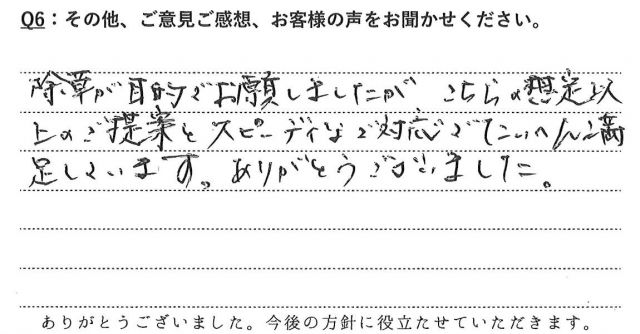 Q6：その他、ご意見ご感想、お客様の声をお聞かせください。
除草が目的でお願しましたが こちらの想定以
上のご提案とスピーディなご対応でたいへん満
足しています。ありがとうございました。
ありがとうございました。今後の方針に役立たせていただきます。